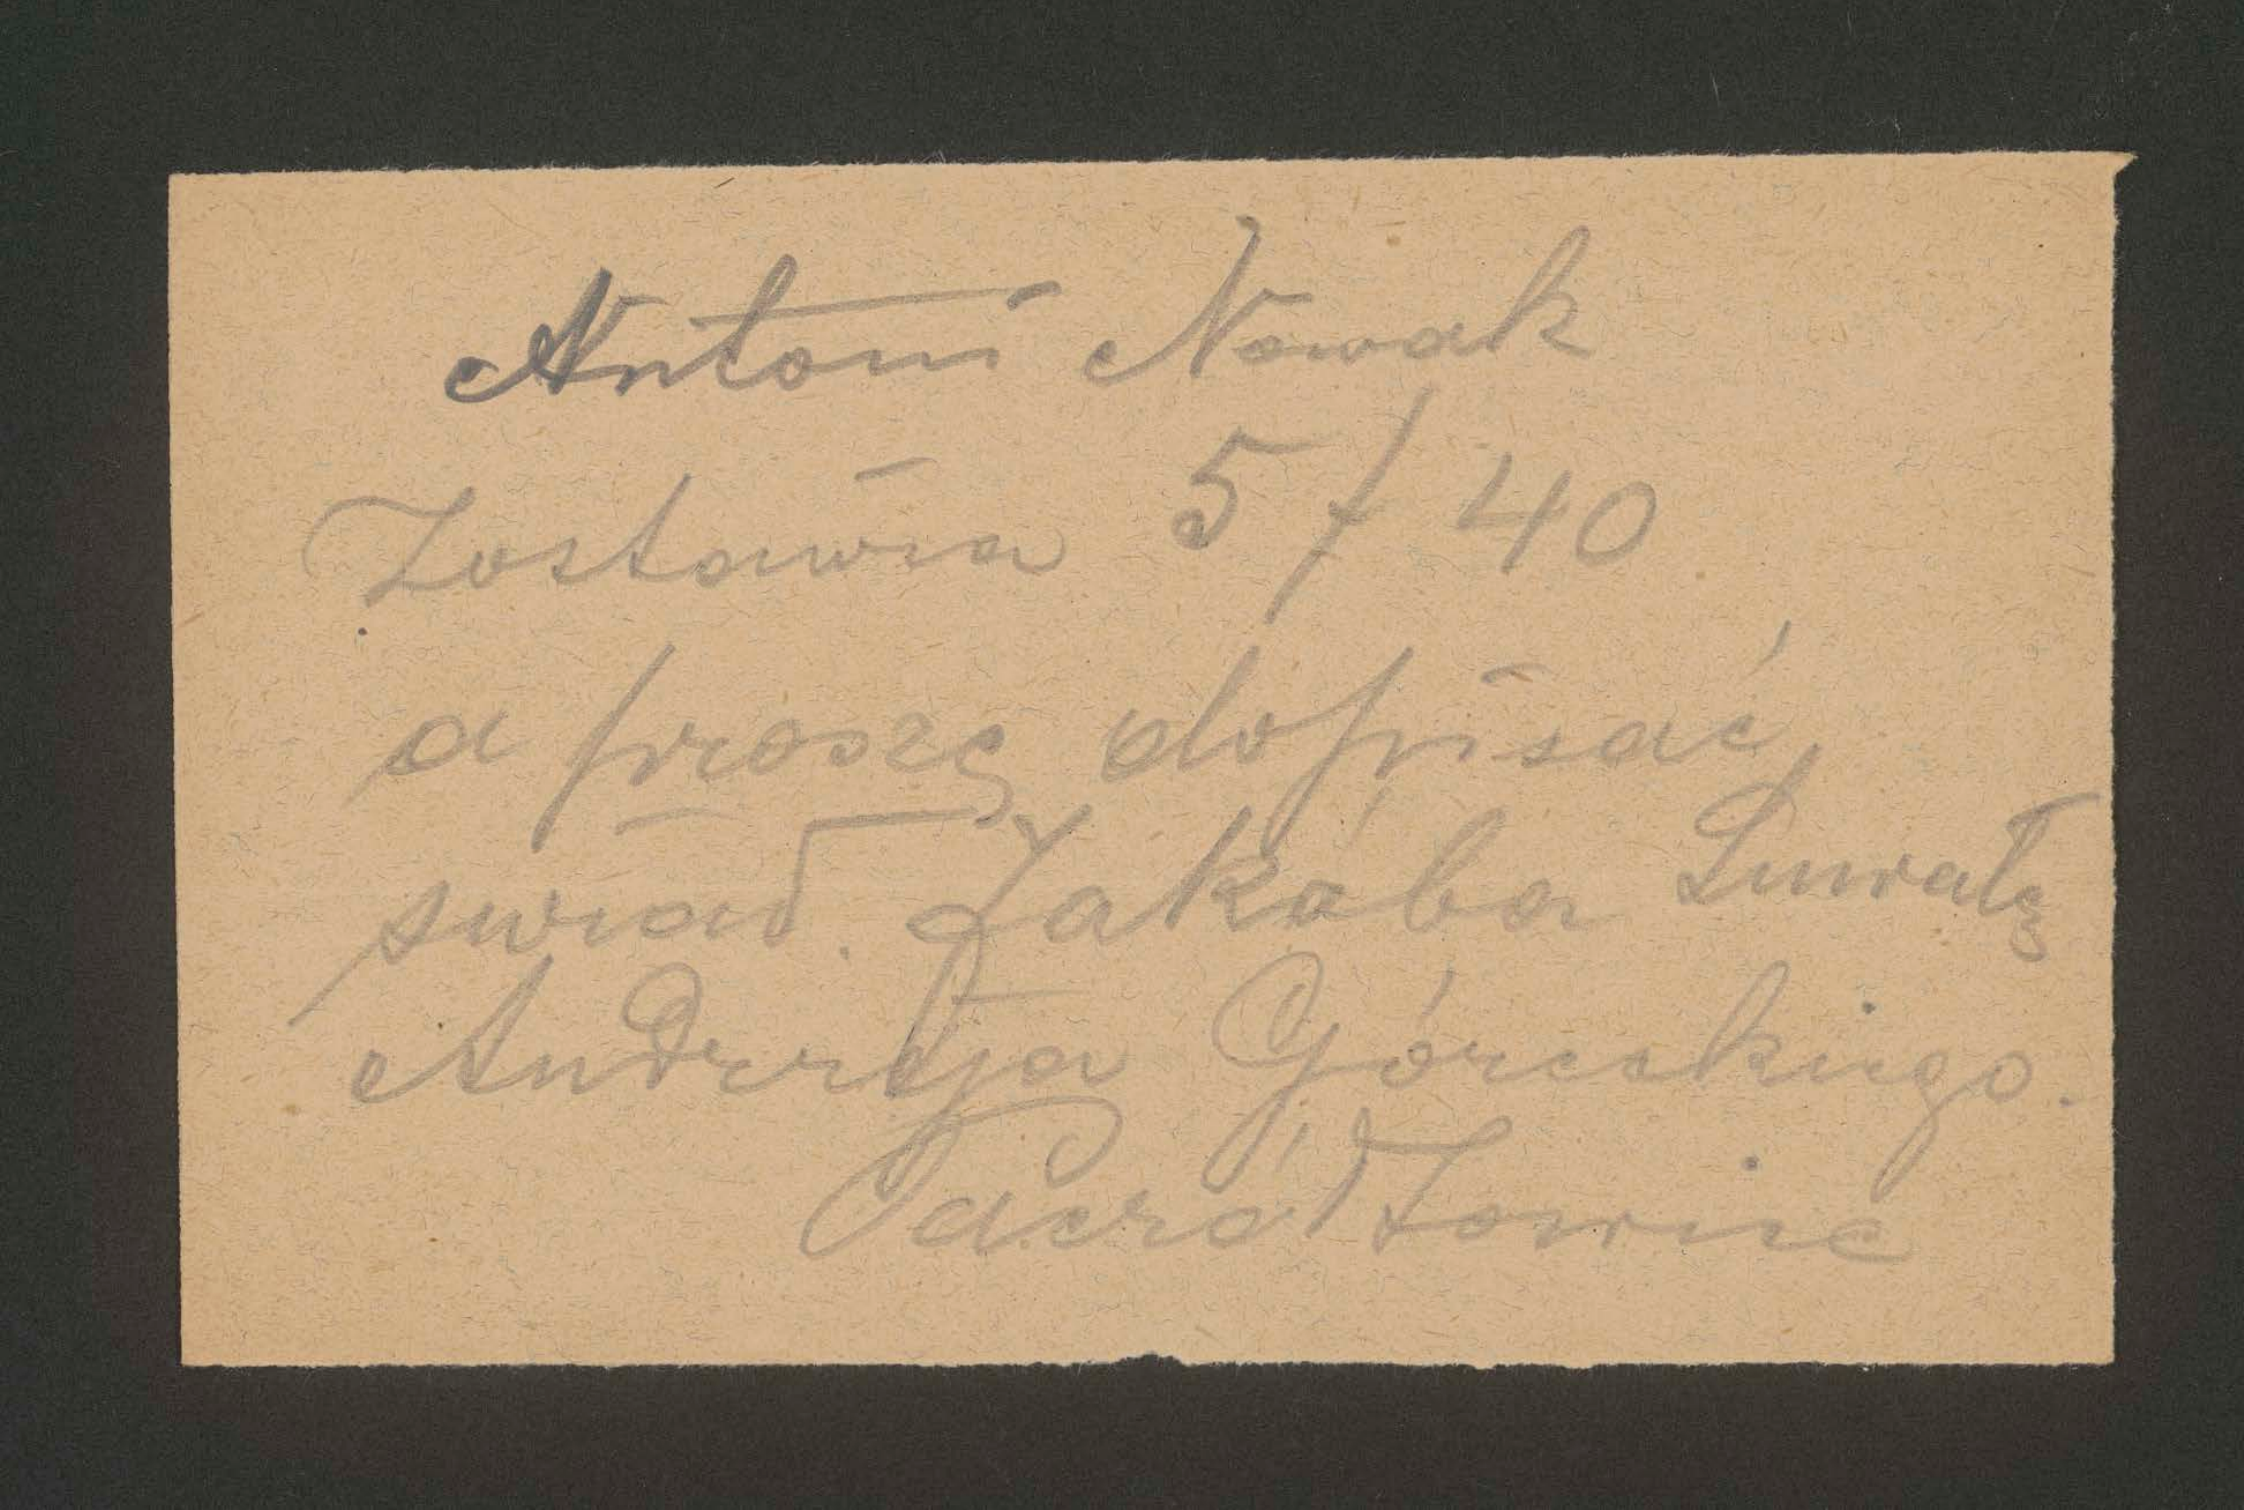 Antoni Nowak
Zostawia 5/40
a proszę dopisać
świad. Jakóba Suwałę
Andrzeja Góreckiego.
Pacrółtowice